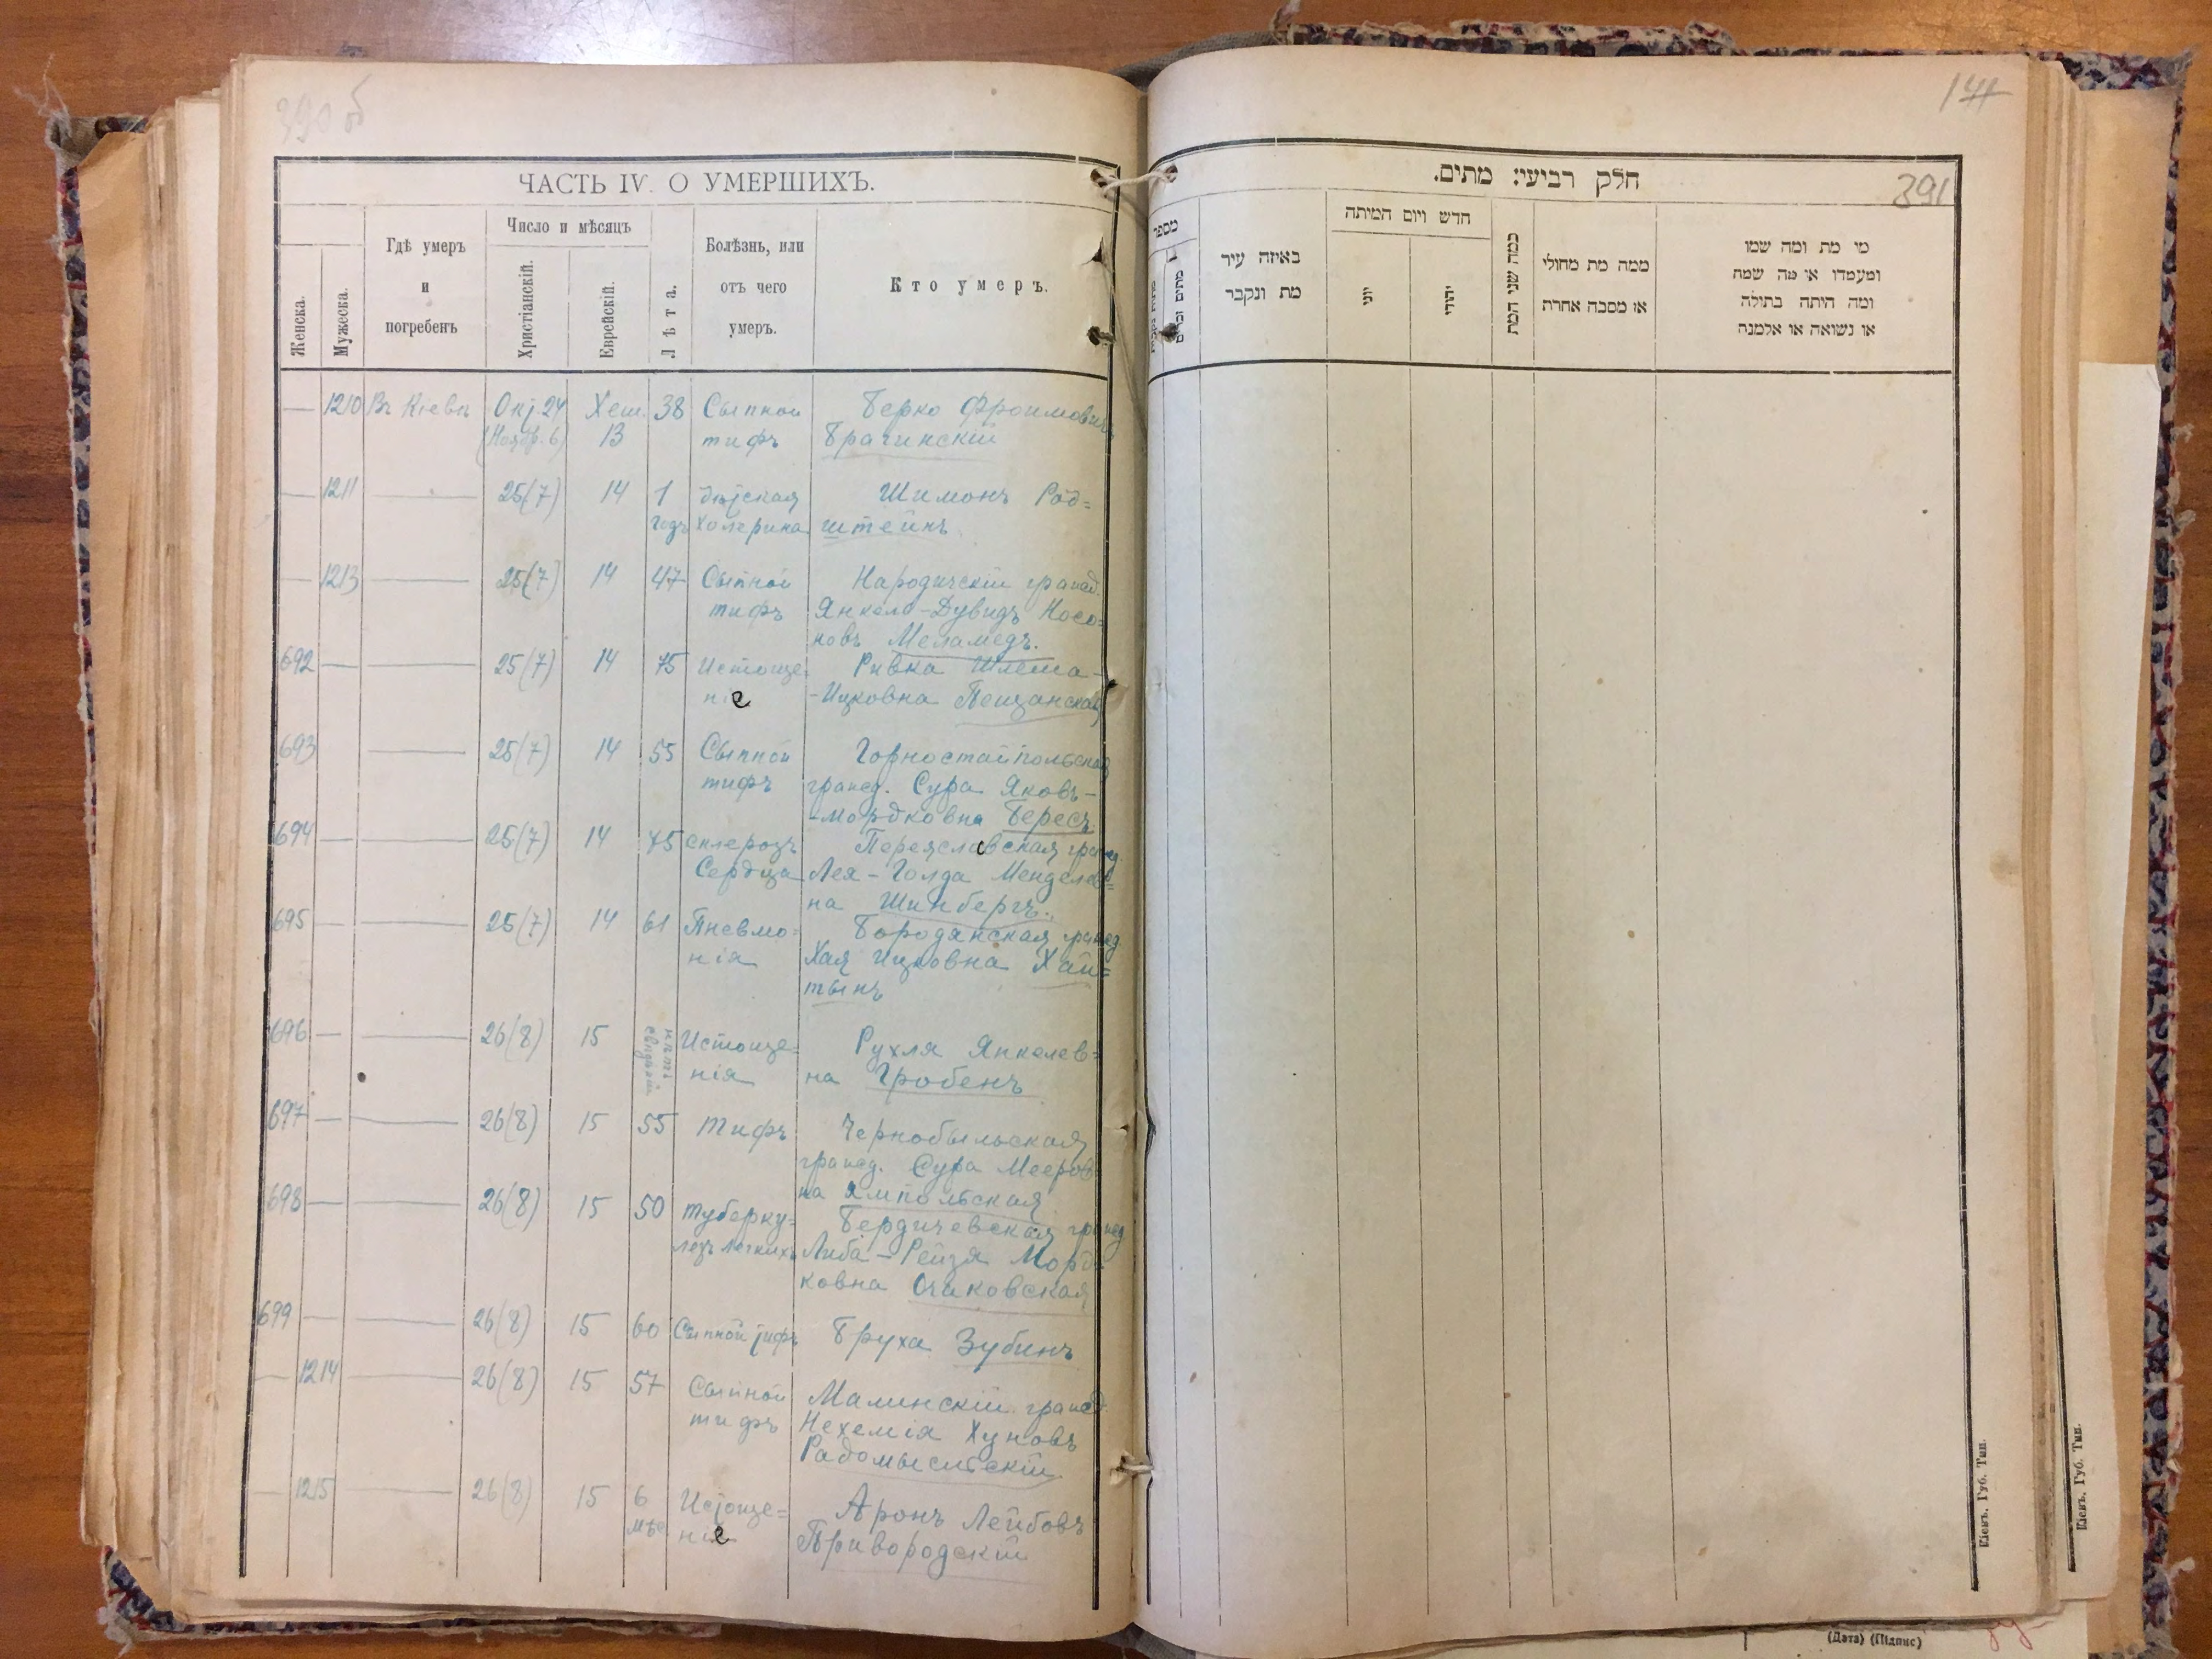 390 об
ЧАСТЬ IV. О УМЕРШИХЪ.
Женска.
Мужеска.
Гдѣ умеръ
и
погребенъ
Число и мѣсяцъ
Христіанскій.
Еврейскій.
Лѣта.
Болѣзнь, или
отъ чего
умеръ.
Кто умеръ.
— 1210 Въ Кіевѣ Окт. 24 Хеш. 38 Сыпной Берко Фроимовичъ
(Ноябр. 6) 13 тифъ Брагинскій
— 1211 — 25(7) 14 1 дѣтская Шимонъ Род=
годъ холерина штейнъ
— 1213 — 25(7) 14 47 Сыпной Народичскій гражд.
тифъ Янкель-Дувидъ Носо=
новъ Меламедъ.
692 — — 25(7) 14 75 Истоще= Ривка Шлема-
ніе -Ицковна Пещанская
693 — 25(7) 14 55 Сыпной Горностайпольская
тифъ гражд. Сура Яковъ-
-Мордковна Бересъ
694 — — 25(7) 14 75 склерозъ Переяславская гражд.
Сердца Лея-Голда Менделев=
на Шинбергъ.
695 — — 25(7) 14 61 Пневмо= Бородянская гражд.
нія Хая Ицковна Хай=
тынъ
696 — — 26(8) 15 Истоще= Рухля Янкелев=
нія на Гробенъ
697 — — 26(8) 15 55 тифъ Чернобыльская
гражд. Сура Мееров
на Ямпольская
698 — — 26(8) 15 50 туберку= Бердичевская гражд
лезъ легкихъ Либа-Рейзя Морд
ковна Очаковская
699 — — 26(8) 15 60 Сыпной тифъ Бруха Зубинъ
— 1214 — 26(8) 15 57 Сыпной Малинскій гражд.
тифъ Нехемія Хуновъ
Радомысльскій
— 1215 26(8) 15 6 Истоще= Аронъ Лейбовъ
мѣс ніе Привородскій
חלק רביעי: מתים.
391
מספר
באיזה עיר
מת ונקבר
חדש ויום המיתה
יוני
יהודי
כמה שני המת
ממה מת מחולי
או מסבה אחרת
מי מת ומה שמו
ומעמדו או מה שמה
ומה היתה בתולה
או נשואה או אלמנה
Кіевъ. Губ. Тип.
Кіевъ. Губ. Тип.
(Дата) (Підпис)